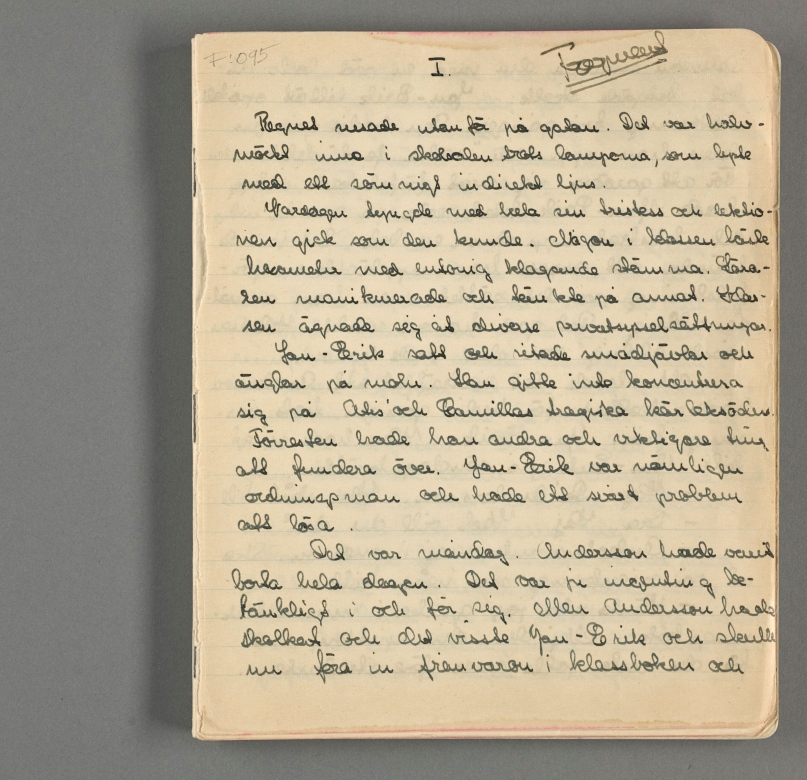 F:095
Fragment
I.
Regnet rusade utanför på gatan. Det var halv-
mörkt inne i skolsalen trots lamporna, som lyste
med ett sömnigt indirekt ljus.
Vardagen tyngde med hela sin tristess och lektio-
nen gick som den kunde. Någon i klassen läste
hexameter med entonig klagande stämma. Lära-
ren manikurerade och tänkte på annat. Klas-
sen ägnade sig åt diverse privatsysselsättningar.
Jan-Erik satt och ritade smådjävlar och
änglar på moln. Han gitte inte koncentrera
sig på Atis' och Camillas tragiska kärleksöden.
Förresten hade han andra och viktigare ting
att fundera över. Jan-Erik var nämligen
ordningsman och hade ett svårt problem
att lösa.
Det var måndag. Andersson hade varit
borta hela dagen. Det var ju ingenting be-
tänkligt i och för sig. Men Andersson hade
skolkat och det visste Jan-Erik och skulle
nu föra in frånvaron i klassboken och